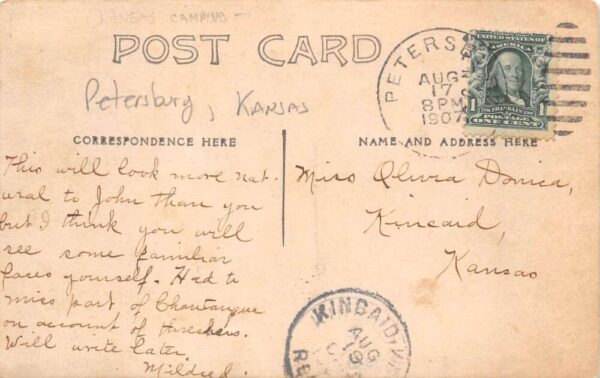 KANSAS CAMPING -
POST CARD
Petersburg, KANSAS
PETERS
AUG
17
8 PM
1907
UNITED STATES OF
AMERICA
1 FRANKLIN 1
POSTAGE
ONE CENT
CORRESPONDENCE HERE
This will look more nat-
ural to John than you
but I think you will
see some familiar
faces yourself. Had to
miss part of Chautauqua
on account of threshers.
Will write later.
Mildred.
NAME AND ADDRESS HERE
Miss Olivia Donica,
Kincaid,
Kansas
KINCAID, KA
AUG
19
RE